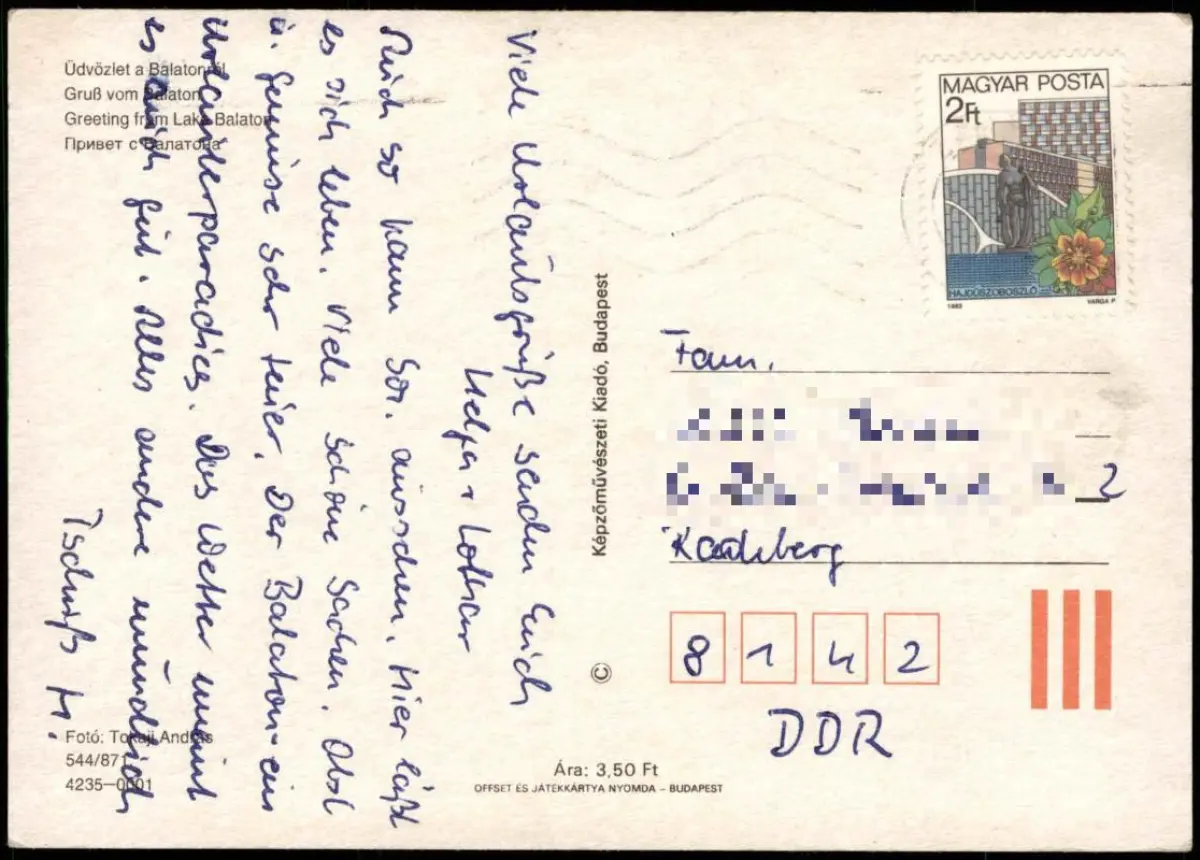 Üdvözlet a Balatonról
Gruß vom Balaton
Greeting from Lake Balaton
Привет с Балатона
Viele Urlaubsgrüße senden Euch
Helga + Lothar
Mich so kann Dor. ausschen. Hier läßt
es sich leben. Viele schöne Sachen. Obst
u. Gemüse sehr teuer. Der Balaton - ein
Urlauberparadies. Das Wetter meint
es auch gut. Alles andere mündlich
Tschüß H.
Fotó: Tokaji András
544/871
4235—0001
Képzőművészeti Kiadó, Budapest
©
Ára: 3,50 Ft
OFFSET ÉS JÁTÉKKÁRTYA NYOMDA – BUDAPEST
MAGYAR POSTA
2Ft
HAJDÚSZOBOSZLÓ
1983
VARGA P.
Fam.
2
8142
DDR